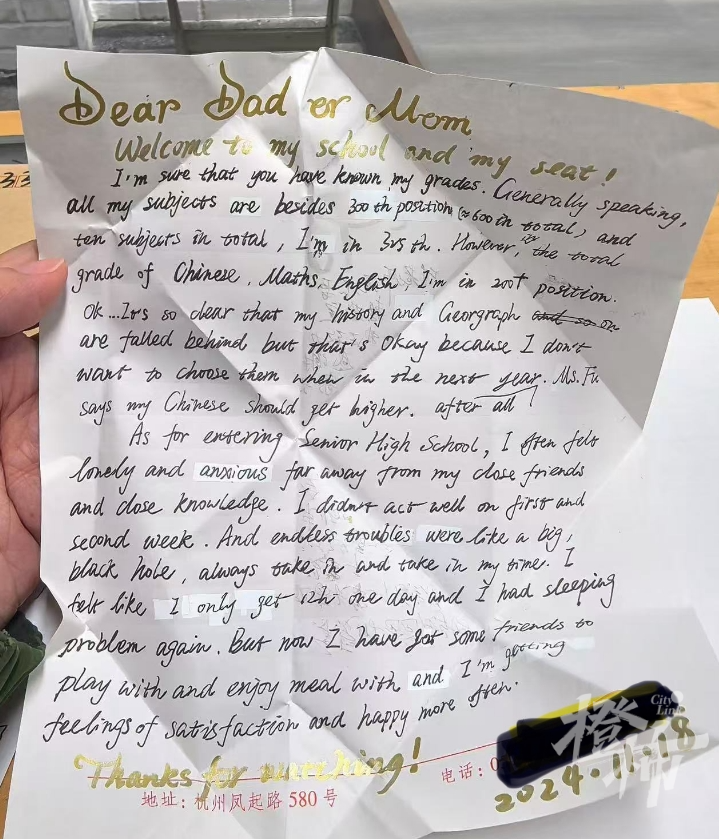 Dear Dad or Mom
Welcome to my school and my seat!
I'm sure that you have known my grades. Generally speaking,
all my subjects are besides 300th position (≈600 in total), and
ten subjects in total, I'm in 325th. However, the total
grade of Chinese, Maths, English I'm in 200t position.
Ok...It's so clear that my history and Georgraph and so on
are falled behind but that's Okay because I don't
want to choose them when in the next year. Ms. Fu
says my Chinese should get higher. after all
As for entering Senior High School, I often felt
lonely and anxious far away from my close friends
and close knowledge. I didn't act well on first and
second week. And endless troubles were like a big,
black hole, always take in and take in my time. I
felt like I only get 12h one day and I had sleeping
problem again. But now I have got some friends to
play with and enjoy meal with and I'm getting
feelings of satisfaction and happy more often.
Thanks for watching!
电话:0
地址:杭州凤起路580号
2024.11.18
City Link
橙柿